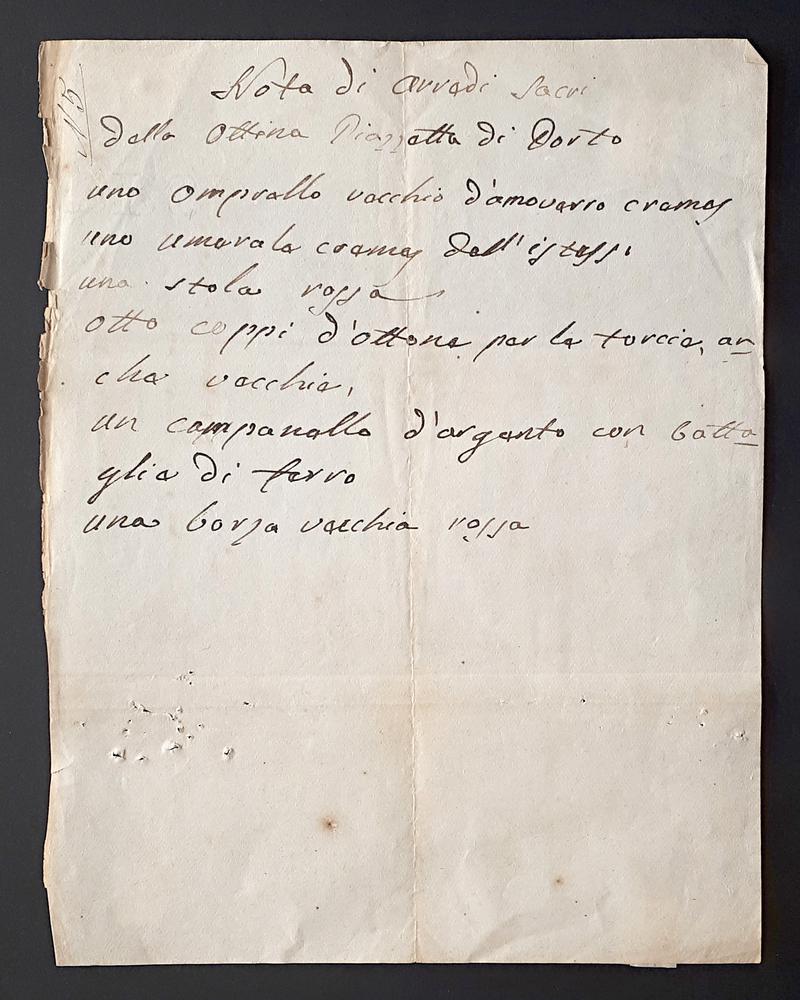 N 5
Nota di Arredi Sacri
della Ottina Piazzetta di Porto
uno omprello vecchio d'amoverro cremes
uno umerale cremes dell'istess
una stola rossa
otto coppi d'ottone per le torcie, an
che vecchie,
un campanello d'argento con batta
glia di ferro
una borza vecchia rossa